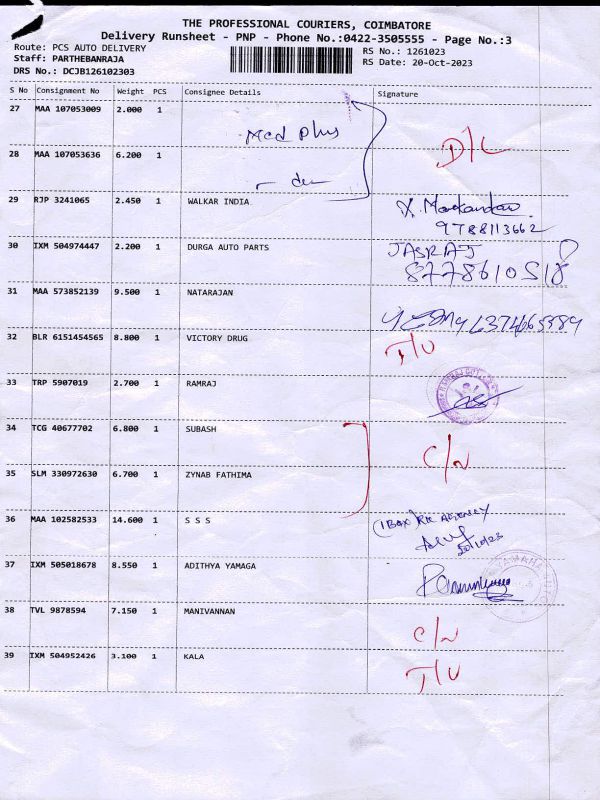 THE PROFESSIONAL COURIERS, COIMBATORE
Delivery Runsheet - PNP - Phone No.:0422-3505555 - Page No.:3
Route: PCS AUTO DELIVERY
Staff: PARTHEBANRAJA
DRS No.: DCJB126102303
RS No.: 1261023
RS Date: 20-Oct-2023
S No Consignment No Weight PCS Consignee Details Signature
27 MAA 107053009 2.000 1
Med plus
28 MAA 107053636 6.200 1
D/L
29 RJP 3241065 2.450 1 WALKAR INDIA
9788113662
30 IXM 504974447 2.200 1 DURGA AUTO PARTS JASRAJ
8778610518
31 MAA 573852139 9.500 1 NATARAJAN
32 BLR 6151454565 8.800 1 VICTORY DRUG T/U
33 TRP 5907019 2.700 1 RAMRAJ
34 TCG 40677702 6.800 1 SUBASH
C/N
35 SLM 330972630 6.700 1 ZYNAB FATHIMA
36 MAA 102582533 14.600 1 S S S (1 BOX) RK AGENCY
20/10/23
37 IXM 505018678 8.550 1 ADITHYA YAMAGA
YAMAHA
38 TVL 9878594 7.150 1 MANIVANNAN C/N
39 IXM 504952426 3.100 1 KALA T/U